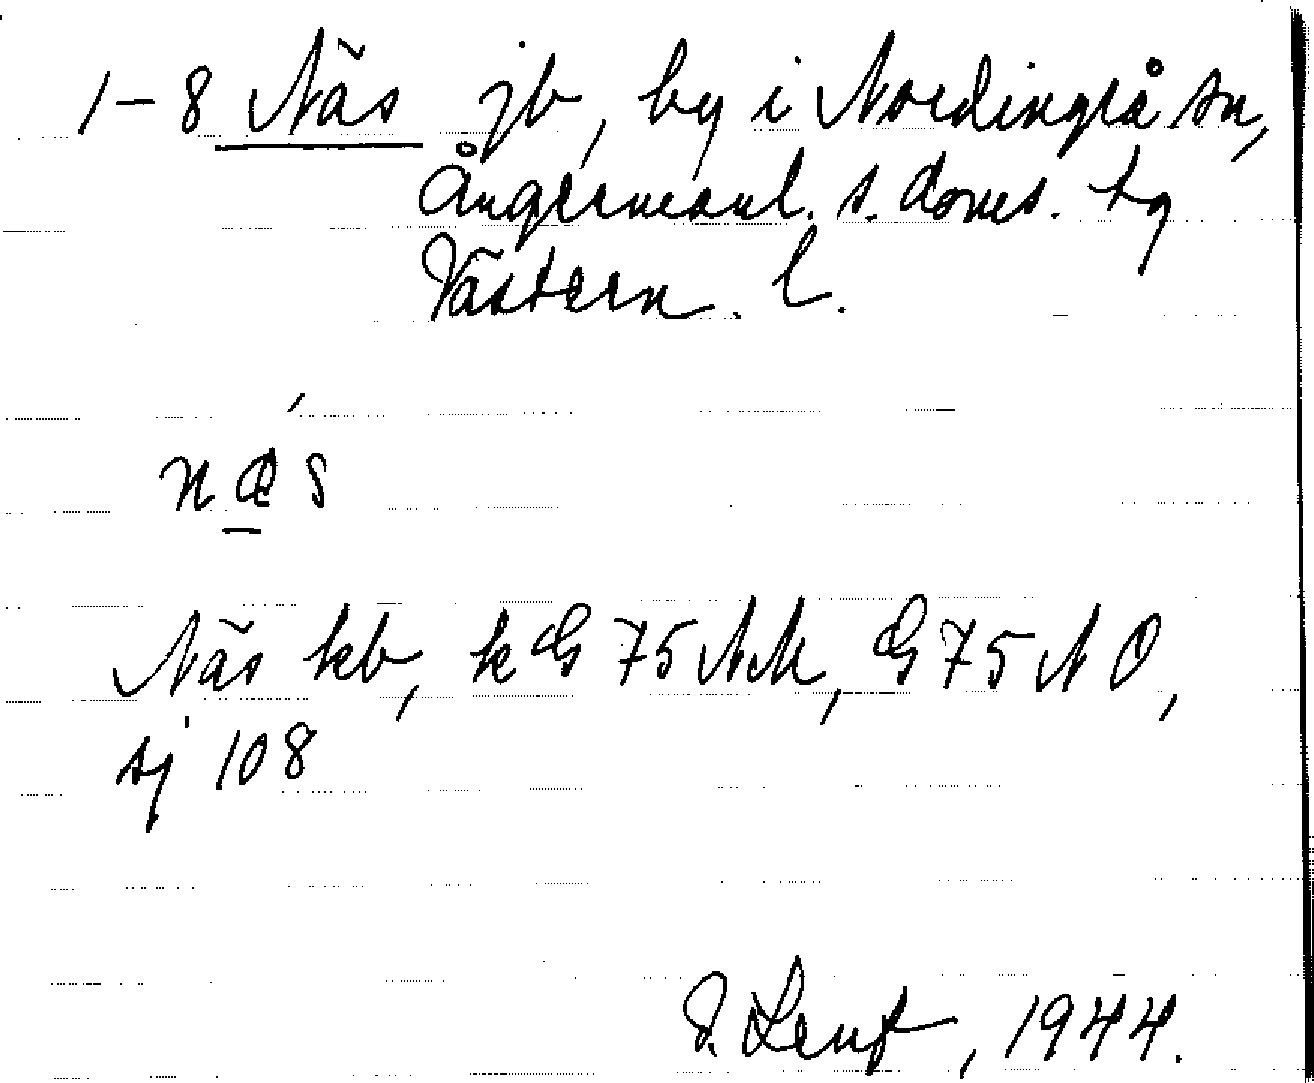 1-8 Näs jb, by i Nordingrå sn,
Ångermanl. s. doms. tg
Västern. l.
næs
Näs kb, k G 75 NM, G 75 N O,
sj 108
Lenf, 1944.